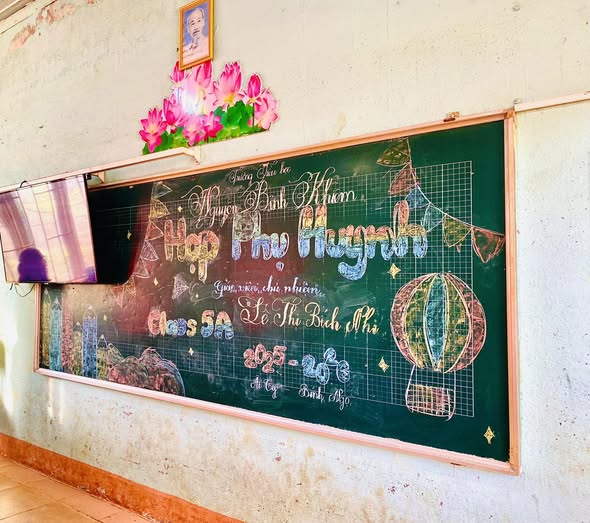 Trường Tiểu học
Nguyễn Bỉnh Khiêm
Họp Phụ Huynh
Giáo viên chủ nhiệm
Lê Thị Bích Nhi
Class 5A
2025 - 2026
Ất Tỵ Bính Ngọ